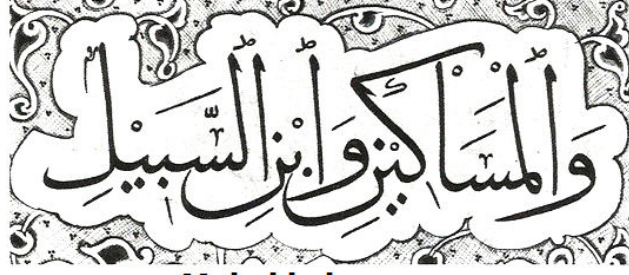 وَالْمَسَاكِينِ وَابْنِ السَّبِيلِ